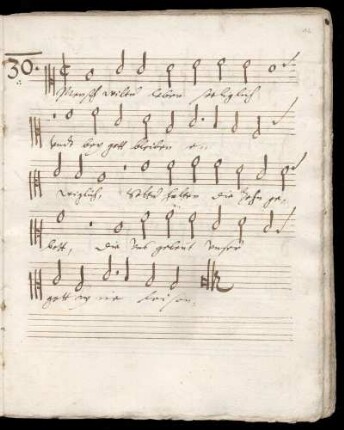 30.
Mensch wiltu leben seliglich
Und bey gott bleiben e-
wiglich, Soltu halten die Zehn ge-
bott, die Uns gebeut Unser
gott